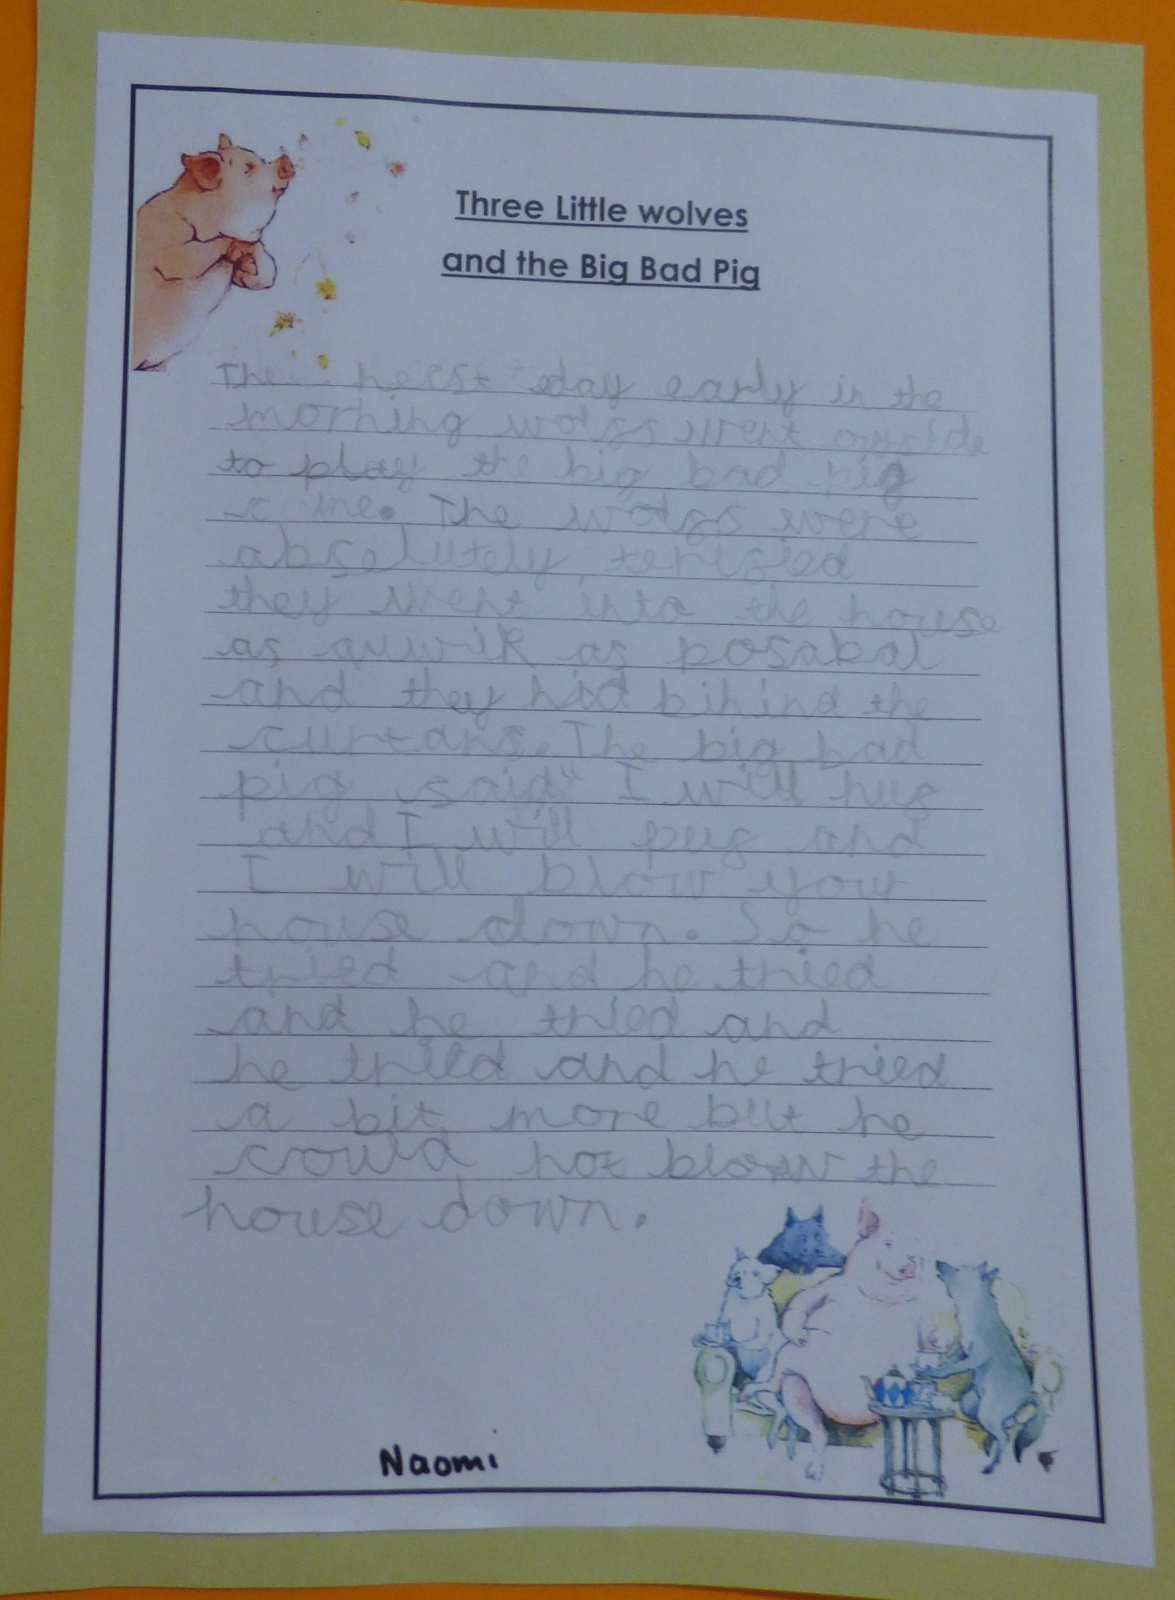 Three Little wolves
and the Big Bad Pig
The necst day early in the
morning wolfs went outside
to play the big bad pig
came. The wolfs were
absolutely terified
they went into the house
as quwik as posabal
and they hid bihind the
curtans. The big bad
pig said" I will huf
and I will puf and
I will blow your
house down. So he
tried and he tried
and he tried and
he tried and he tried
a bit more but he
could not blow the
house down.
Naomi